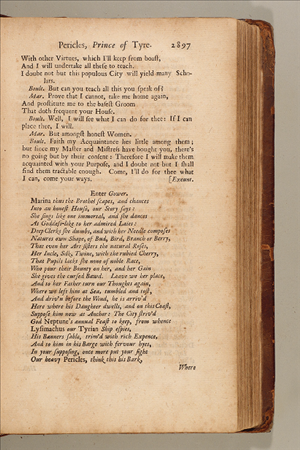 Pericles, Prince of Tyre. 2897
With other Virtues, which I'll keep from boast,
And I will undertake all these to teach.
I doubt not but this populous City will yield many Scho-
lars.
Boult. But can you teach all this you speak of?
Mar. Prove that I cannot, take me home again,
And prostitute me to the basest Groom
That doth frequent your House.
Boult. Well, I will see what I can do for thee: If I can
place thee, I will.
Mar. But amongst honest Women.
Boult. Faith my Acquaintance lies little among them;
but since my Master and Mistress have bought you, there's
no going but by their consent: Therefore I will make them
acquainted with your Purpose, and I doubt not but I shall
find them tractable enough. Come, I'll do for thee what
I can, come your ways. [Exeunt.
Enter Gower.
Marina thus the Brothel scapes, and chances
Into an honest House, our Story says:
She sings like one immortal, and she dances
As Goddess-like to her admired Laies:
Deep Clerks she dumbs, and with her Needle composes
Natures own Shape, of Bud, Bird, Branch or Berry,
That even her Art sisters the natural Roses,
Her Incle, Silk, Twine, with the rubied Cherry,
That Pupils lacks she none of noble Race,
Who pour their Bounty on her, and her Gain
She gives the cursed Bawd. Leave we her place,
And to her Father turn our Thoughts again,
Where we left him at Sea, tumbled and tost,
And driv'n before the Wind, he is arriv'd
Here where his Daughter dwells, and on this Coast,
Suppose him now at Anchor: The City striv'd
God Neptune's annual Feast to keep, from whence
Lysimachus our Tyrian Ship espies,
His Banners sable, trim'd with rich Expence,
And to him in his Barge with fervour hyes,
In your supposing, once more put your sight
Our heavy Pericles, think this his Bark,
Where